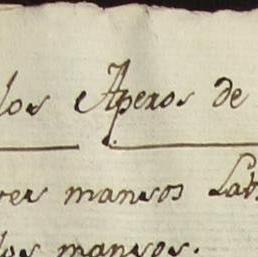 los Aperos de
ver mansos Lab
los mansos.